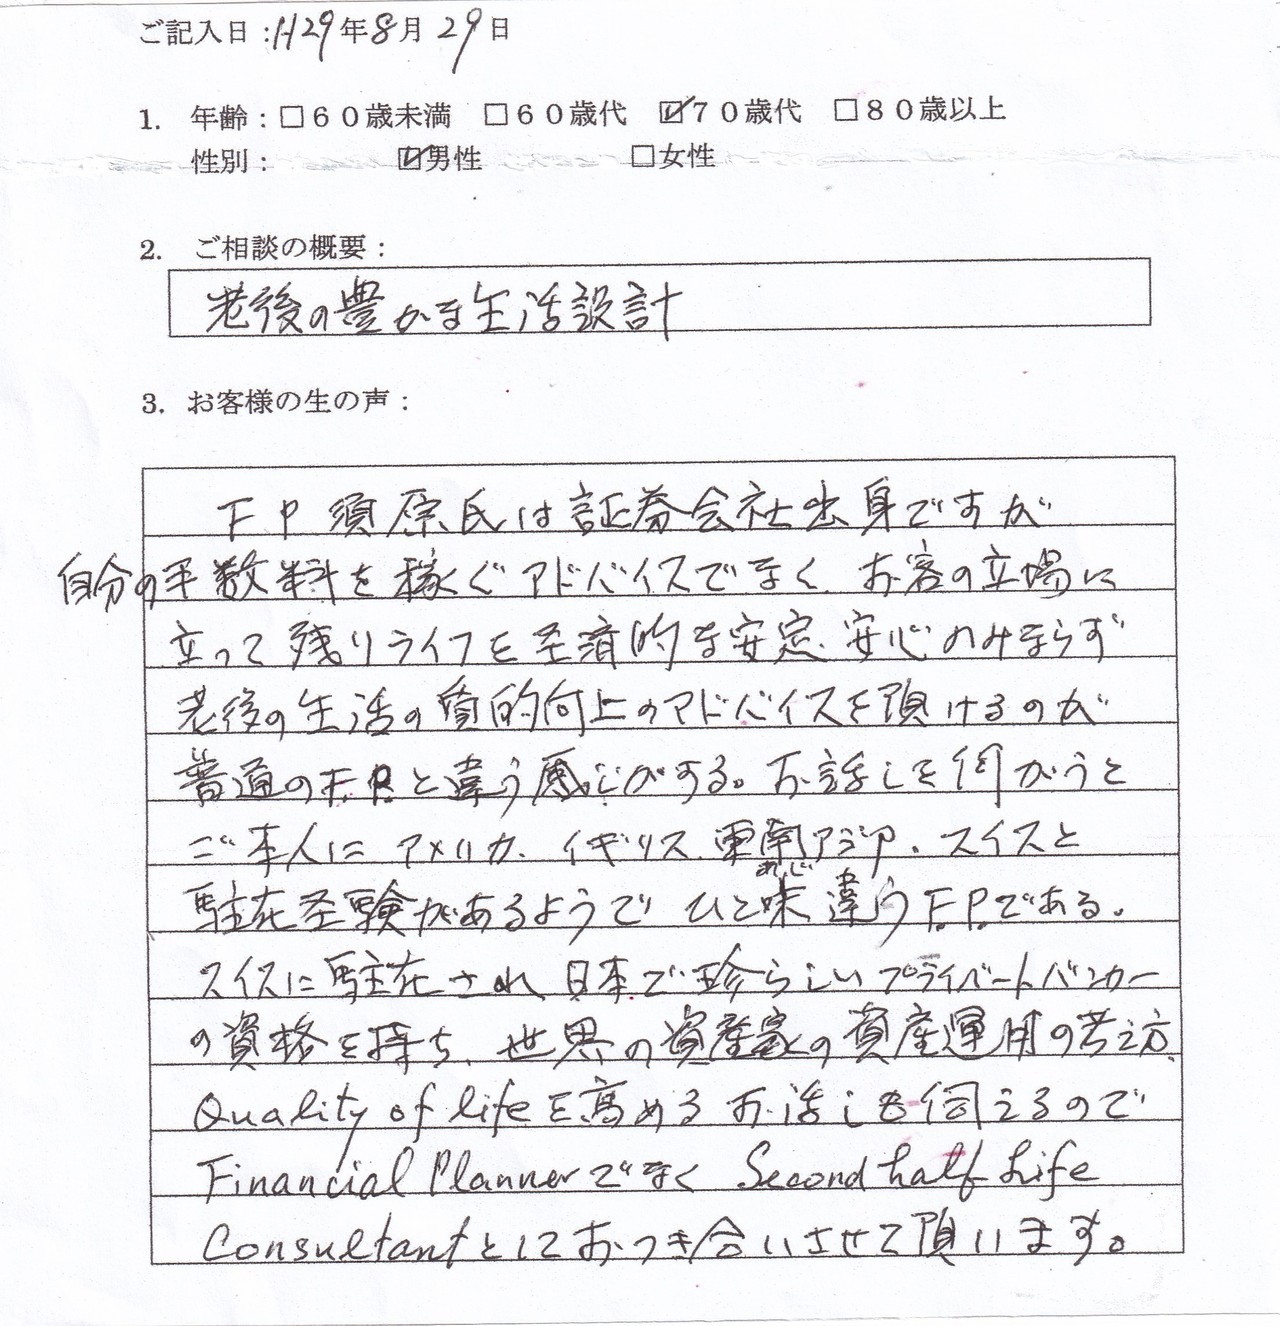 ご記入日：H29年8月29日
1. 年齢：□６０歳未満 □６０歳代 ☑７０歳代 □８０歳以上
性別： ☑男性 □女性
2. ご相談の概要：
老後の豊かな生活設計
3. お客様の生の声：
F P 須原氏は証券会社出身ですが
自分の手数料を稼ぐアドバイスでなく、お客の立場に
立って残りライフを経済的な安定、安心のみならず
老後の生活の質的向上のアドバイスを頂けるのが
普通のF.P.と違う感じがする。お話しを伺がうと
ご本人にアメリカ、イギリス、東南アジア、スイスと
駐在経験があるようでひと味違うF.P.である。
あじ
スイスに駐在され日本で珍らしいプライベートバンカー
の資格を持ち、世界の資産家の資産運用の考え方、
Quality of lifeを高めるお話しも伺えるので
Financial Plannerでなく Second half Life
Consultantとしておつき合いさせて頂います。